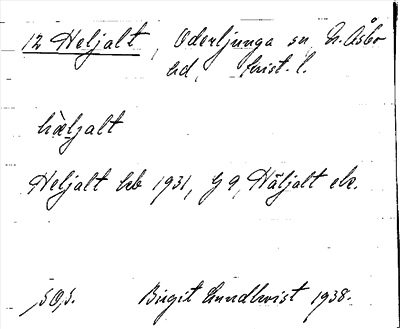 12 Heljalt, Oderljunga sn, N. Åsbo
hd, Krist. l.
hæljalt
Heljalt hb 1931, G 9, Häljalt ek.
SOS. Birgit Lundkvist 1938.